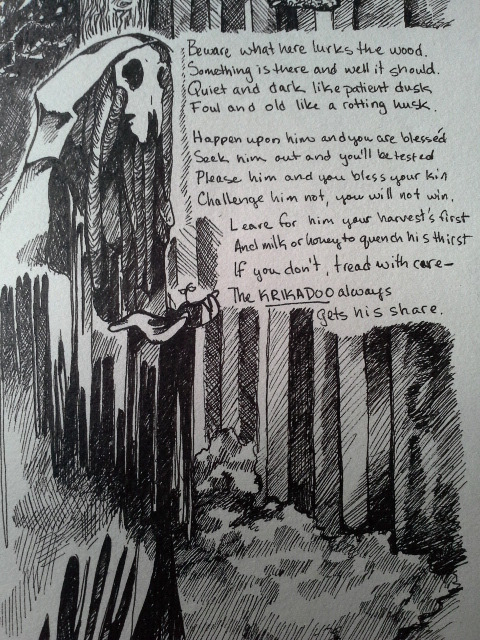 Beware what here lurks the wood.
Something is there and well it should.
Quiet and dark like patient dusk
Foul and old like a rotting husk.
Happen upon him and you are blessed
Seek him out and you'll be tested
Please him and you bless your kin
Challenge him not, you will not win.
Leave for him your harvest's first
And milk or honey to quench his thirst
If you don't, tread with care—
The KRIKADOO always
gets his share.